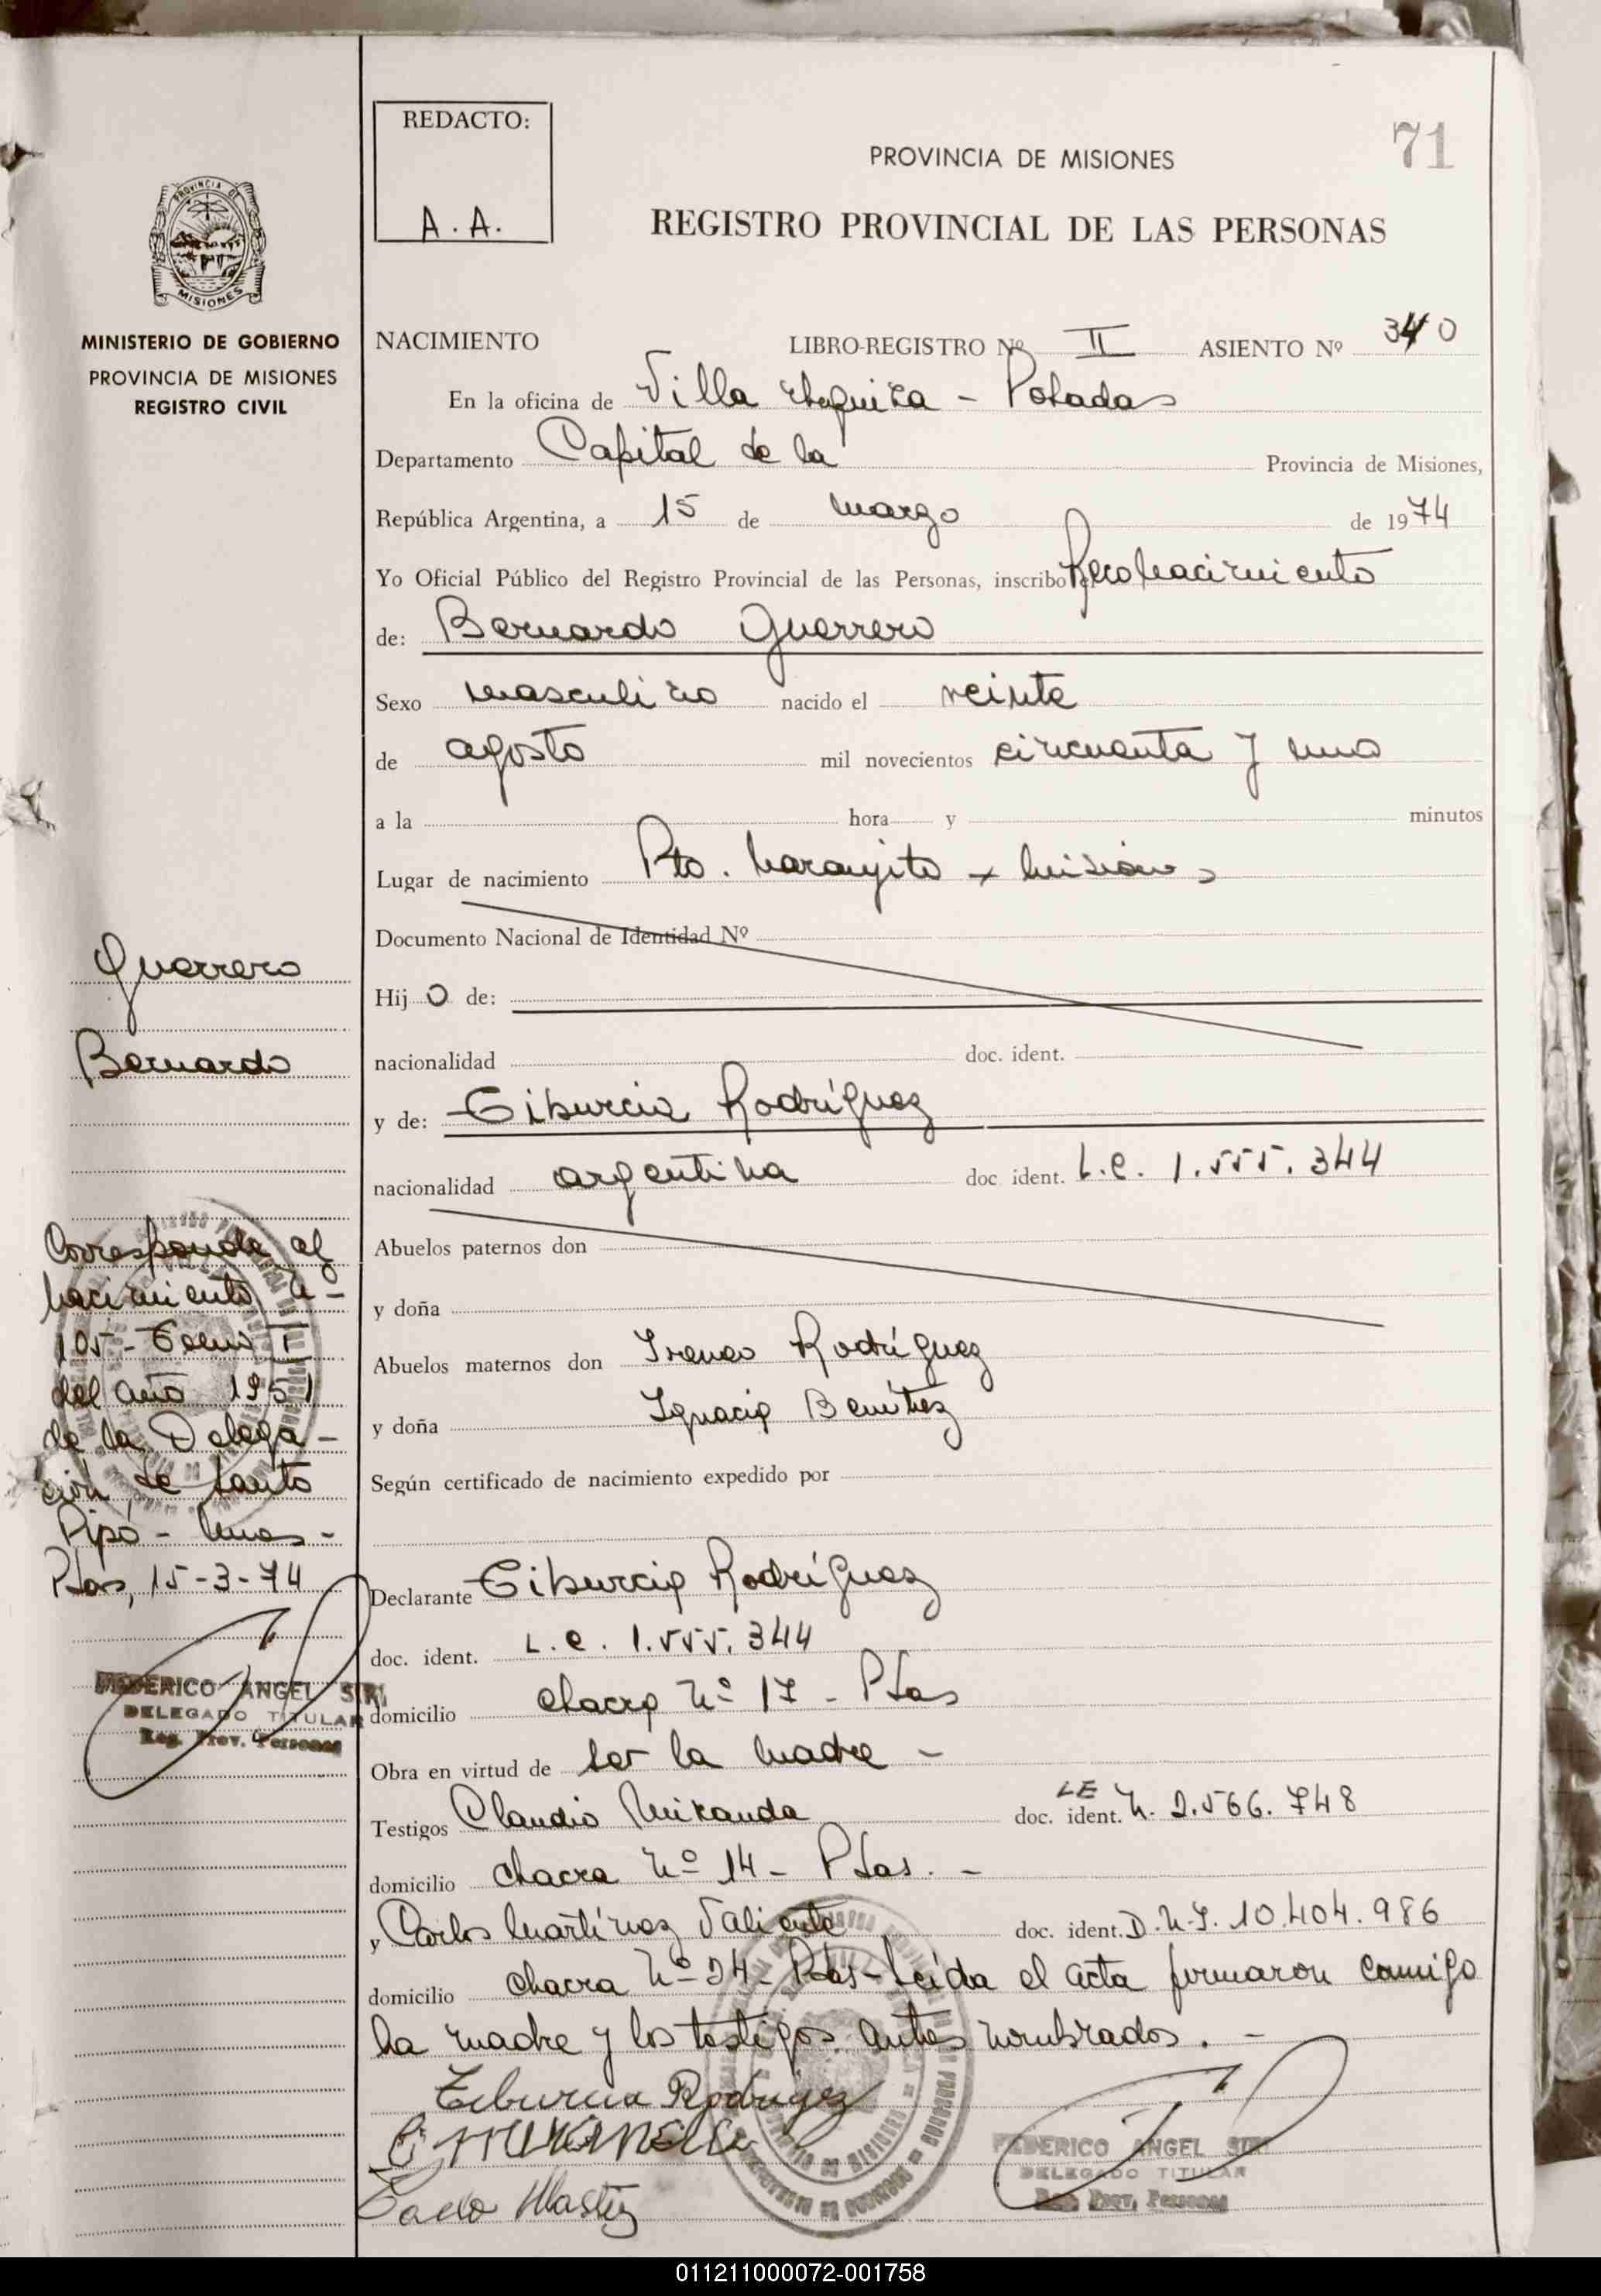 REDACTO:
A. A.
PROVINCIA DE MISIONES
71
REGISTRO PROVINCIAL DE LAS PERSONAS
PROVINCIA DE
MISIONES
MINISTERIO DE GOBIERNO
PROVINCIA DE MISIONES
REGISTRO CIVIL
NACIMIENTO LIBRO-REGISTRO Nº II ASIENTO Nº 340
En la oficina de Villa Urquiza - Posadas
Departamento Capital de la Provincia de Misiones,
República Argentina, a 15 de marzo de 1974
Yo Oficial Público del Registro Provincial de las Personas, inscribo Reconocimiento
de: Bernardo Guerrero
Sexo masculino nacido el veinte
de agosto mil novecientos cincuenta y uno
a la hora y minutos
Lugar de nacimiento Pto. Naranjito - Misiones
Documento Nacional de Identidad Nº
Hij o de:
nacionalidad doc. ident.
y de: Tiburcia Rodríguez
nacionalidad argentina doc. ident. L.C. 1.555.344
Abuelos paternos don
y doña
Abuelos maternos don Ireneo Rodríguez
y doña Ignacia Benítez
Según certificado de nacimiento expedido por
Declarante Tiburcia Rodríguez
doc. ident. L.C. 1.555.344
domicilio chacra Nº 17 - Pdas
Obra en virtud de ser la madre -
Testigos Claudio Miranda doc. ident. LE N. 2.566.748
domicilio chacra Nº 14 - Pdas. -
y Carlos Martínez Valiente doc. ident. D.N.I. 10.404.986
domicilio chacra Nº 24 - Pdas - Leída el acta firmaron conmigo
la madre y los testigos antes nombrados. -
Tiburcia Rodriguez
FEDERICO ANGEL SIRI
DELEGADO TITULAR
Reg. Prov. Personas
Guerrero
Bernardo
Corresponde al
nacimiento Nº
105 - Tomo I
del año 1951
de la Delega-
ción de Santo
Pipó - Mnes -
Pdas, 15-3-74
FEDERICO ANGEL SIRI
DELEGADO TITULAR
Reg. Prov. Personas
011211000072-001758